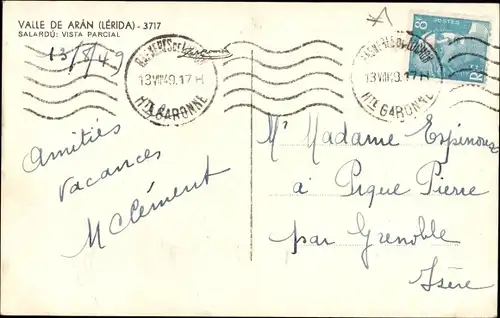 VALLE DE ARÁN (LÉRIDA) - 3717
SALARDÚ: VISTA PARCIAL
13/8/49
13 VIII 49. 17 H
Hte GARONNE
13 VIII 49. 17 H
Hte GARONNE
8F
POSTES
RF
Amitiés
vacances
M Clément
Mr Madame Espinoua
à Pique Pierre
par Grenoble
Isère